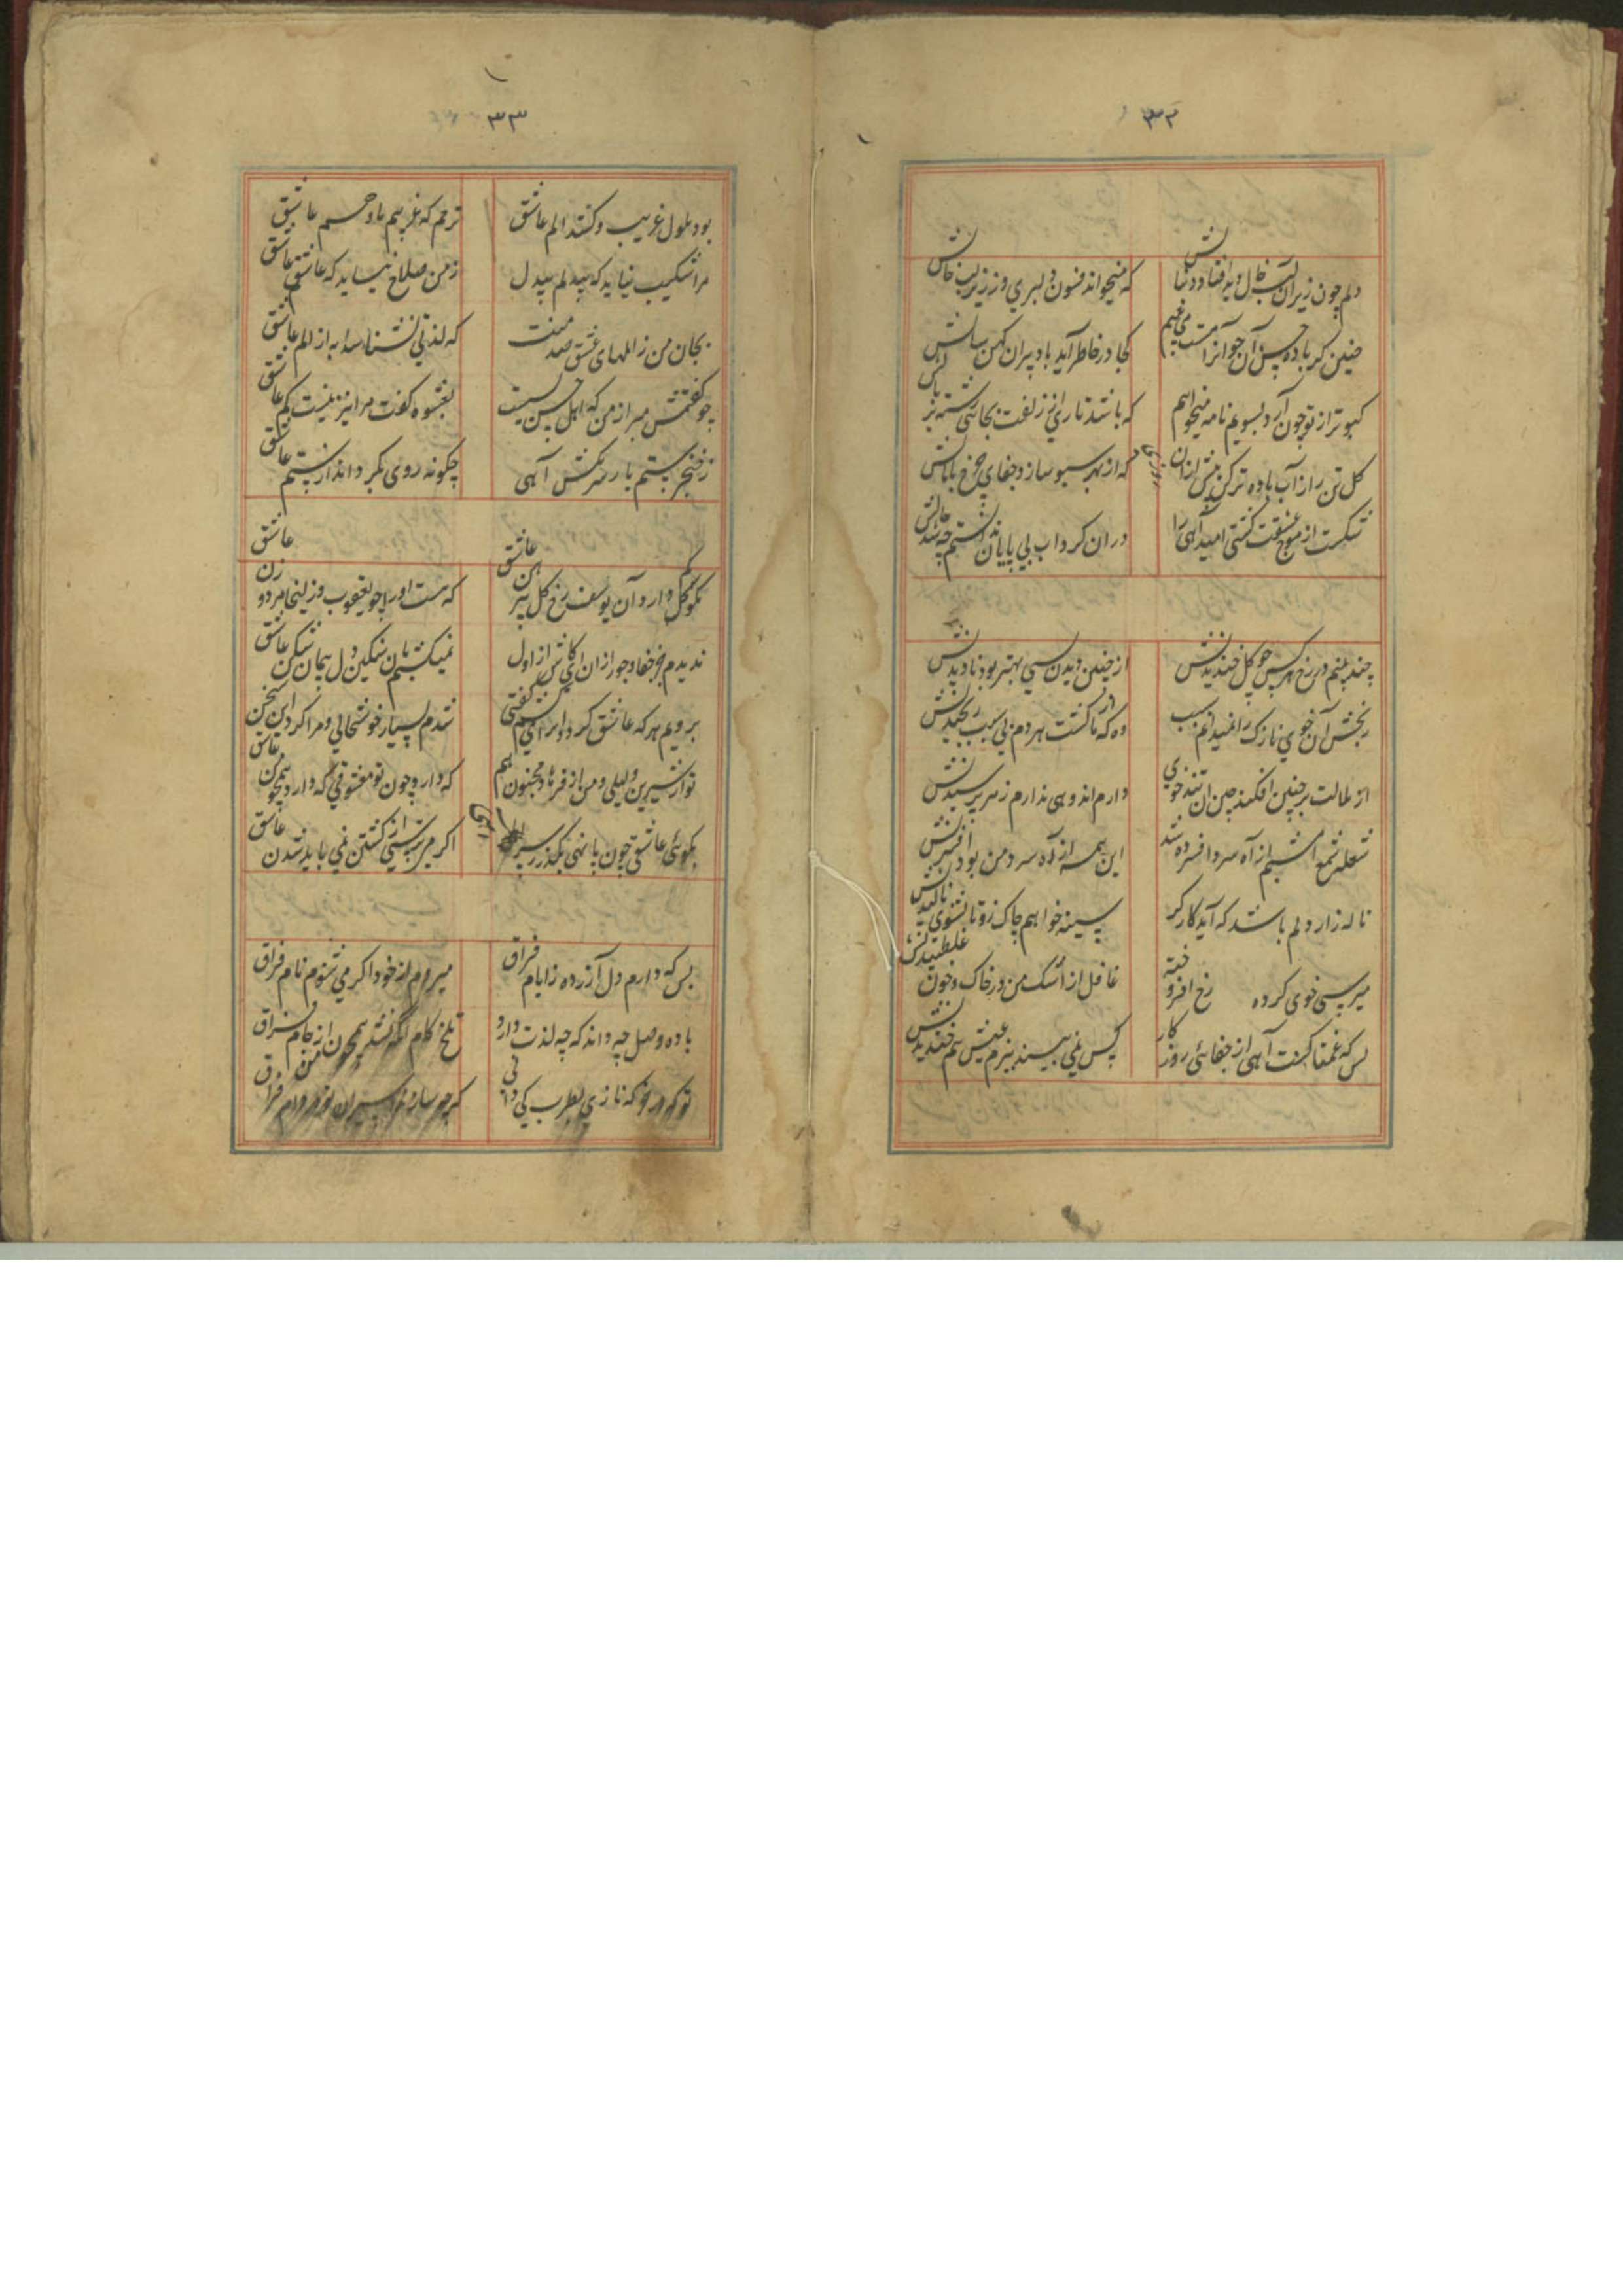 ۳۲
دلم چون زیر آن لب خال دید افتاد در تابش
که میخواند فسون دلبری در زیر لب خالش
چنین کز باده حسن آن جوان را مست می بینم
کجا در خاطر آید یاد پیران کهن سالش
کبوتر از تو چون آرد بسویم نامه میخواهم
که باشد تاری از زلفت بجای رشته بر بالش
گل تن را از آب باده تر کن پیش ازان
که از بهر سبو سازد جفای چرخ پامالش
شکست از موج عشقت کشتی امید آهی را
دران گرداب بی پایان ندانستم چه شد حالش
چند بینم در رخ هر کس چو گل خندیدنش
از چنین دیدن بسی بهتر بود نادیدنش
رنجش آن خوی نازک را نمیدانم سبب
وه که ما را کشت هر دم بی سبب رنجیدنش
از ملالت بر جبین افکنده چین آن تندخوی
دارم اندوهی ندارم زهره پرسیدنش
شعله شمع امشبم از آه سرد افسرده شد
این همه از آه سرد من بود افسردنش
ناله زار دلم باشد که آید کارگر
سینه خواهم چاک زد تا بشنوی نالیدنش
میرسی خوی کرده رخ افروخته
غافل از اشک من و در خاک و خون غلطیدنش
بس که غمناکست آهی از جفای روزگار
کس نمی بیند ببزم عیش هم خندیدنش
۳۳
بود ملول غریب و کشد الم عاشق
ترحم که غریبم با و هم عاشق
مرا شکیب نیاید که بیدلم بیدل
ز من صلاح نیاید که عاشقم عاشق
بجان من ز المهای عشق صد منت
که لذتی نشناسد به از الم عاشق
چو گفتمش مبر از من که اهل حسن نیست
بعشوه گفت مرا نیز نیست کم عاشق
ز خنجر ستم یار سر مکش آهی
چگونه روی بگرداند از ستم عاشق
نکو گل دارد آن یوسف رخ گل پیرهن عاشق
که هست او را چو یعقوب و زلیخا مرد و زن عاشق
ندیدم جز جفا و جور ازان ای کاش از اول
نمیگشتم بآن سنگین دل پیمان شکن عاشق
برویم هر که عاشق گردد او را میکشم گفتی
شدم بسیار خوشحال و مرا کرد این سخن عاشق
تو از شیرین و لیلی و من از فرهاد و مجنون هم
که دارد چون تو معشوقی که دارد همچو من عاشق
بکوی عاشقی چون پا نهی بگذر ز سر آهی
اگر میترسی از کشتن نمی باید شدن عاشق
بس که دارم دل آزرده ز ایام فراق
میروم از خود اگر می شنوم نام فراق
باده وصل چه داند که چه لذت دارد
تلخ کام که نشد همچو من از جام فراق
تو که در نازی بطرب کی دانی
که چه سازند اسیران تو در دام فراق